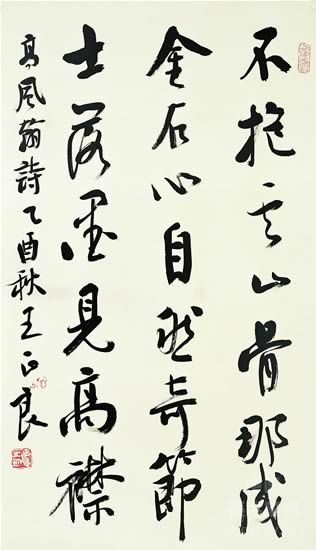 不抱雲山骨那成
金石心自然奇節
士落墨見高襟
高風翰詩乙酉秋王正良